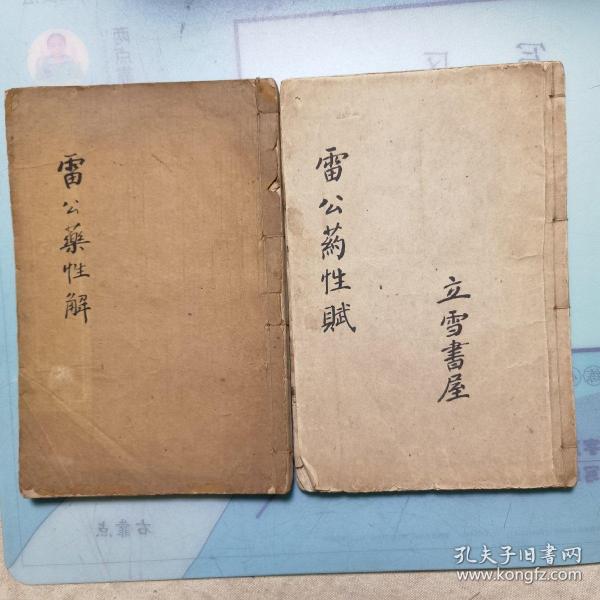 雷公藥性解
雷公葯性賦
立雪書屋
右靠点
孔夫子旧书网
www.kongfz.com